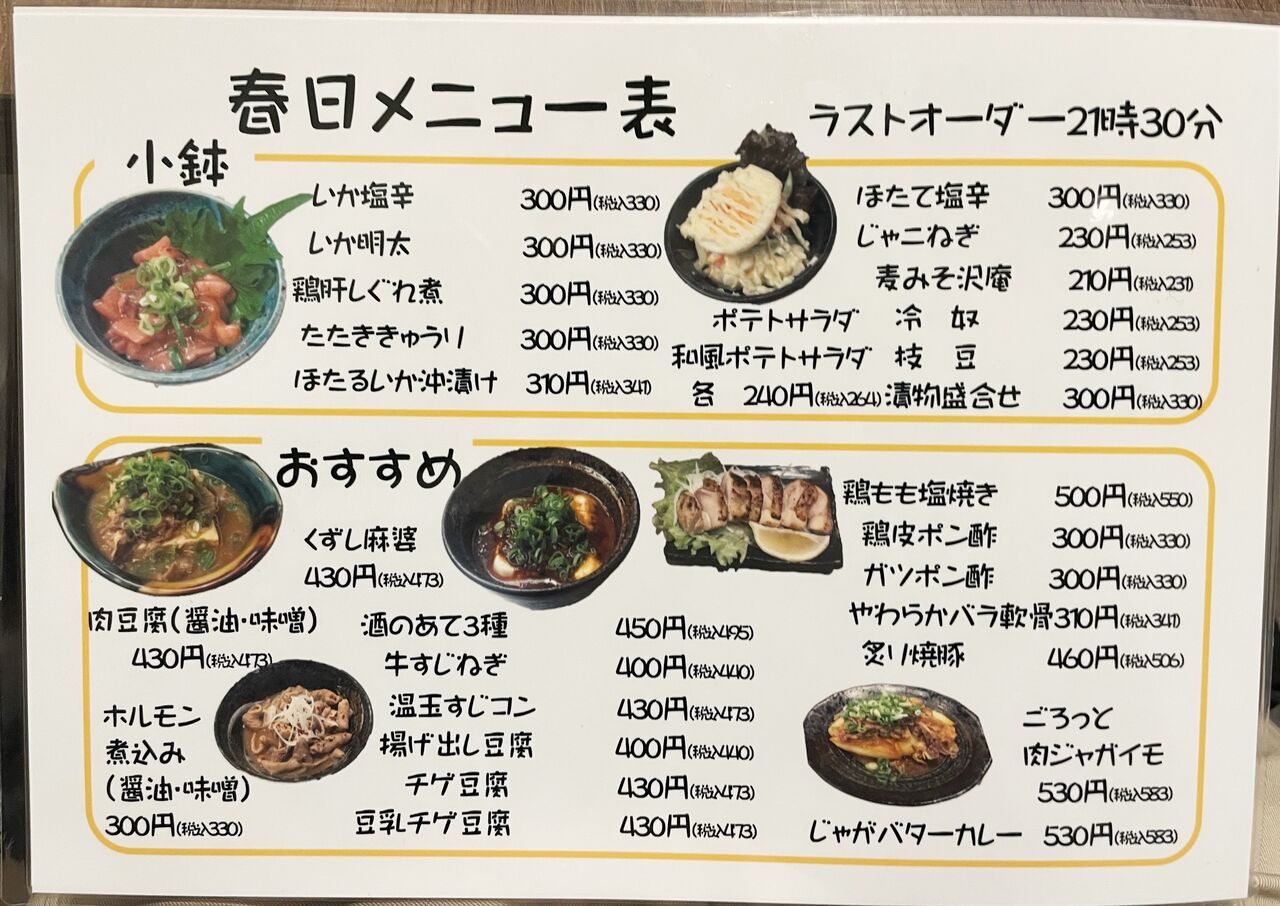 春日メニュー表
ラストオーダー21時30分
小鉢
いか塩辛 300円(税込330)
いか明太 300円(税込330)
鶏肝しぐれ煮 300円(税込330)
たたききゅうり 300円(税込330)
ほたるいか沖漬け 310円(税込341)
ポテトサラダ
和風ポテトサラダ
各 240円(税込264)
ほたて塩辛 300円(税込330)
じゃこねぎ 230円(税込253)
麦みそ沢庵 210円(税込231)
冷 奴 230円(税込253)
枝 豆 230円(税込253)
漬物盛合せ 300円(税込330)
おすすめ
くずし麻婆
430円(税込473)
肉豆腐(醤油・味噌)
430円(税込473)
ホルモン
煮込み
(醤油・味噌)
300円(税込330)
酒のあて3種 450円(税込495)
牛すじねぎ 400円(税込440)
温玉すじコン 430円(税込473)
揚げ出し豆腐 400円(税込440)
チゲ豆腐 430円(税込473)
豆乳チゲ豆腐 430円(税込473)
鶏もも塩焼き 500円(税込550)
鶏皮ポン酢 300円(税込330)
ガツポン酢 300円(税込330)
やわらかバラ軟骨310円(税込341)
炙り焼豚 460円(税込506)
ごろっと
肉ジャガイモ
530円(税込583)
じゃがバターカレー 530円(税込583)